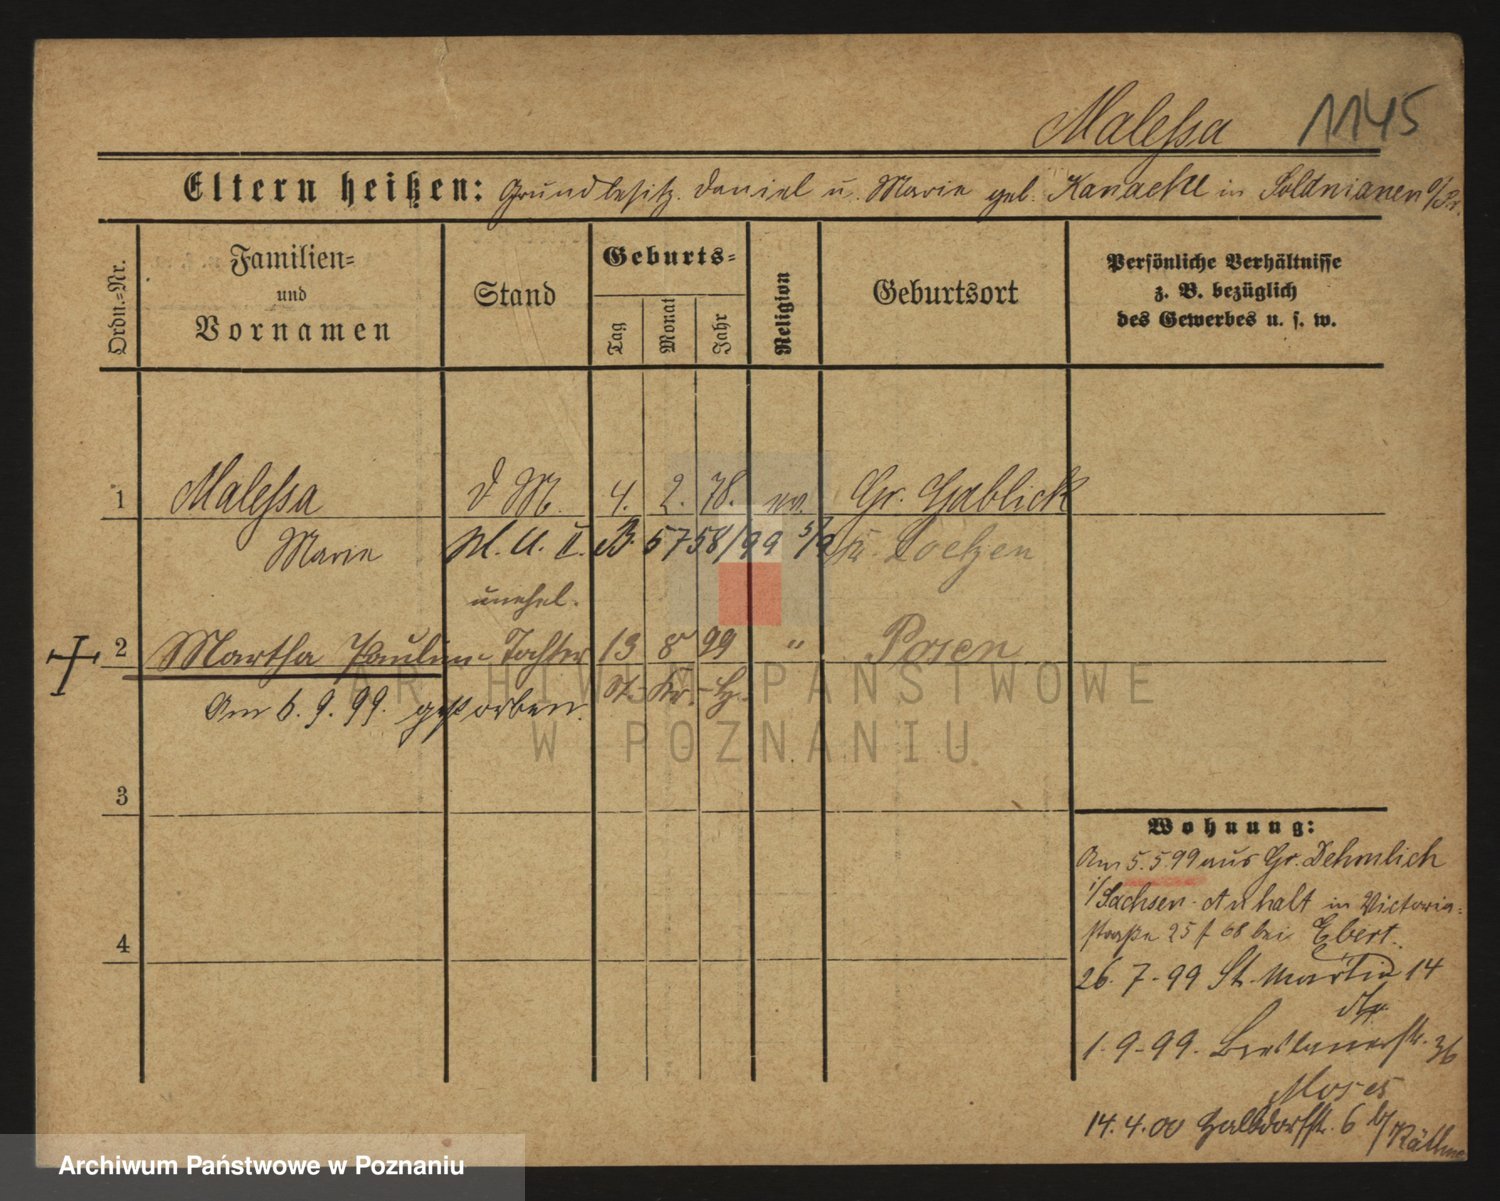 Malessa 1145
Eltern heißen: Grundbesitz. Daniel u. Marie geb. Kanacke in Soldnianen O/Pr.
Ordn.-Nr.
Familien-
und
Vornamen
Stand
Geburts-
Tag
Monat
Jahr
Religion
Geburtsort
Persönliche Verhältnisse
z. B. bezüglich
des Gewerbes u. s. w.
1 Malessa d M. 4. 2. 78. ev. Gr. Gablick
Marie U. II. B. 5758/99 Kr. Loetzen
unehel.
2 Martha Pauline Tochter 13 8 99 " Posen
Am 6. 9. 99. gestorben.
3
4
Wohnung:
Am 5.5.99 aus Gr. Dehmlich
i/Sachsen-Anhalt in Victoria-
straße 25 bei Ebert.
26. 7. 99 St. Martin 14
1. 9. 99. Breslauerstr. 36
Moses
14. 4. 00 Halbdorfstr. 6 b/
ARCHIWUM PAŃSTWOWE
W POZNANIU
Archiwum Państwowe w Poznaniu